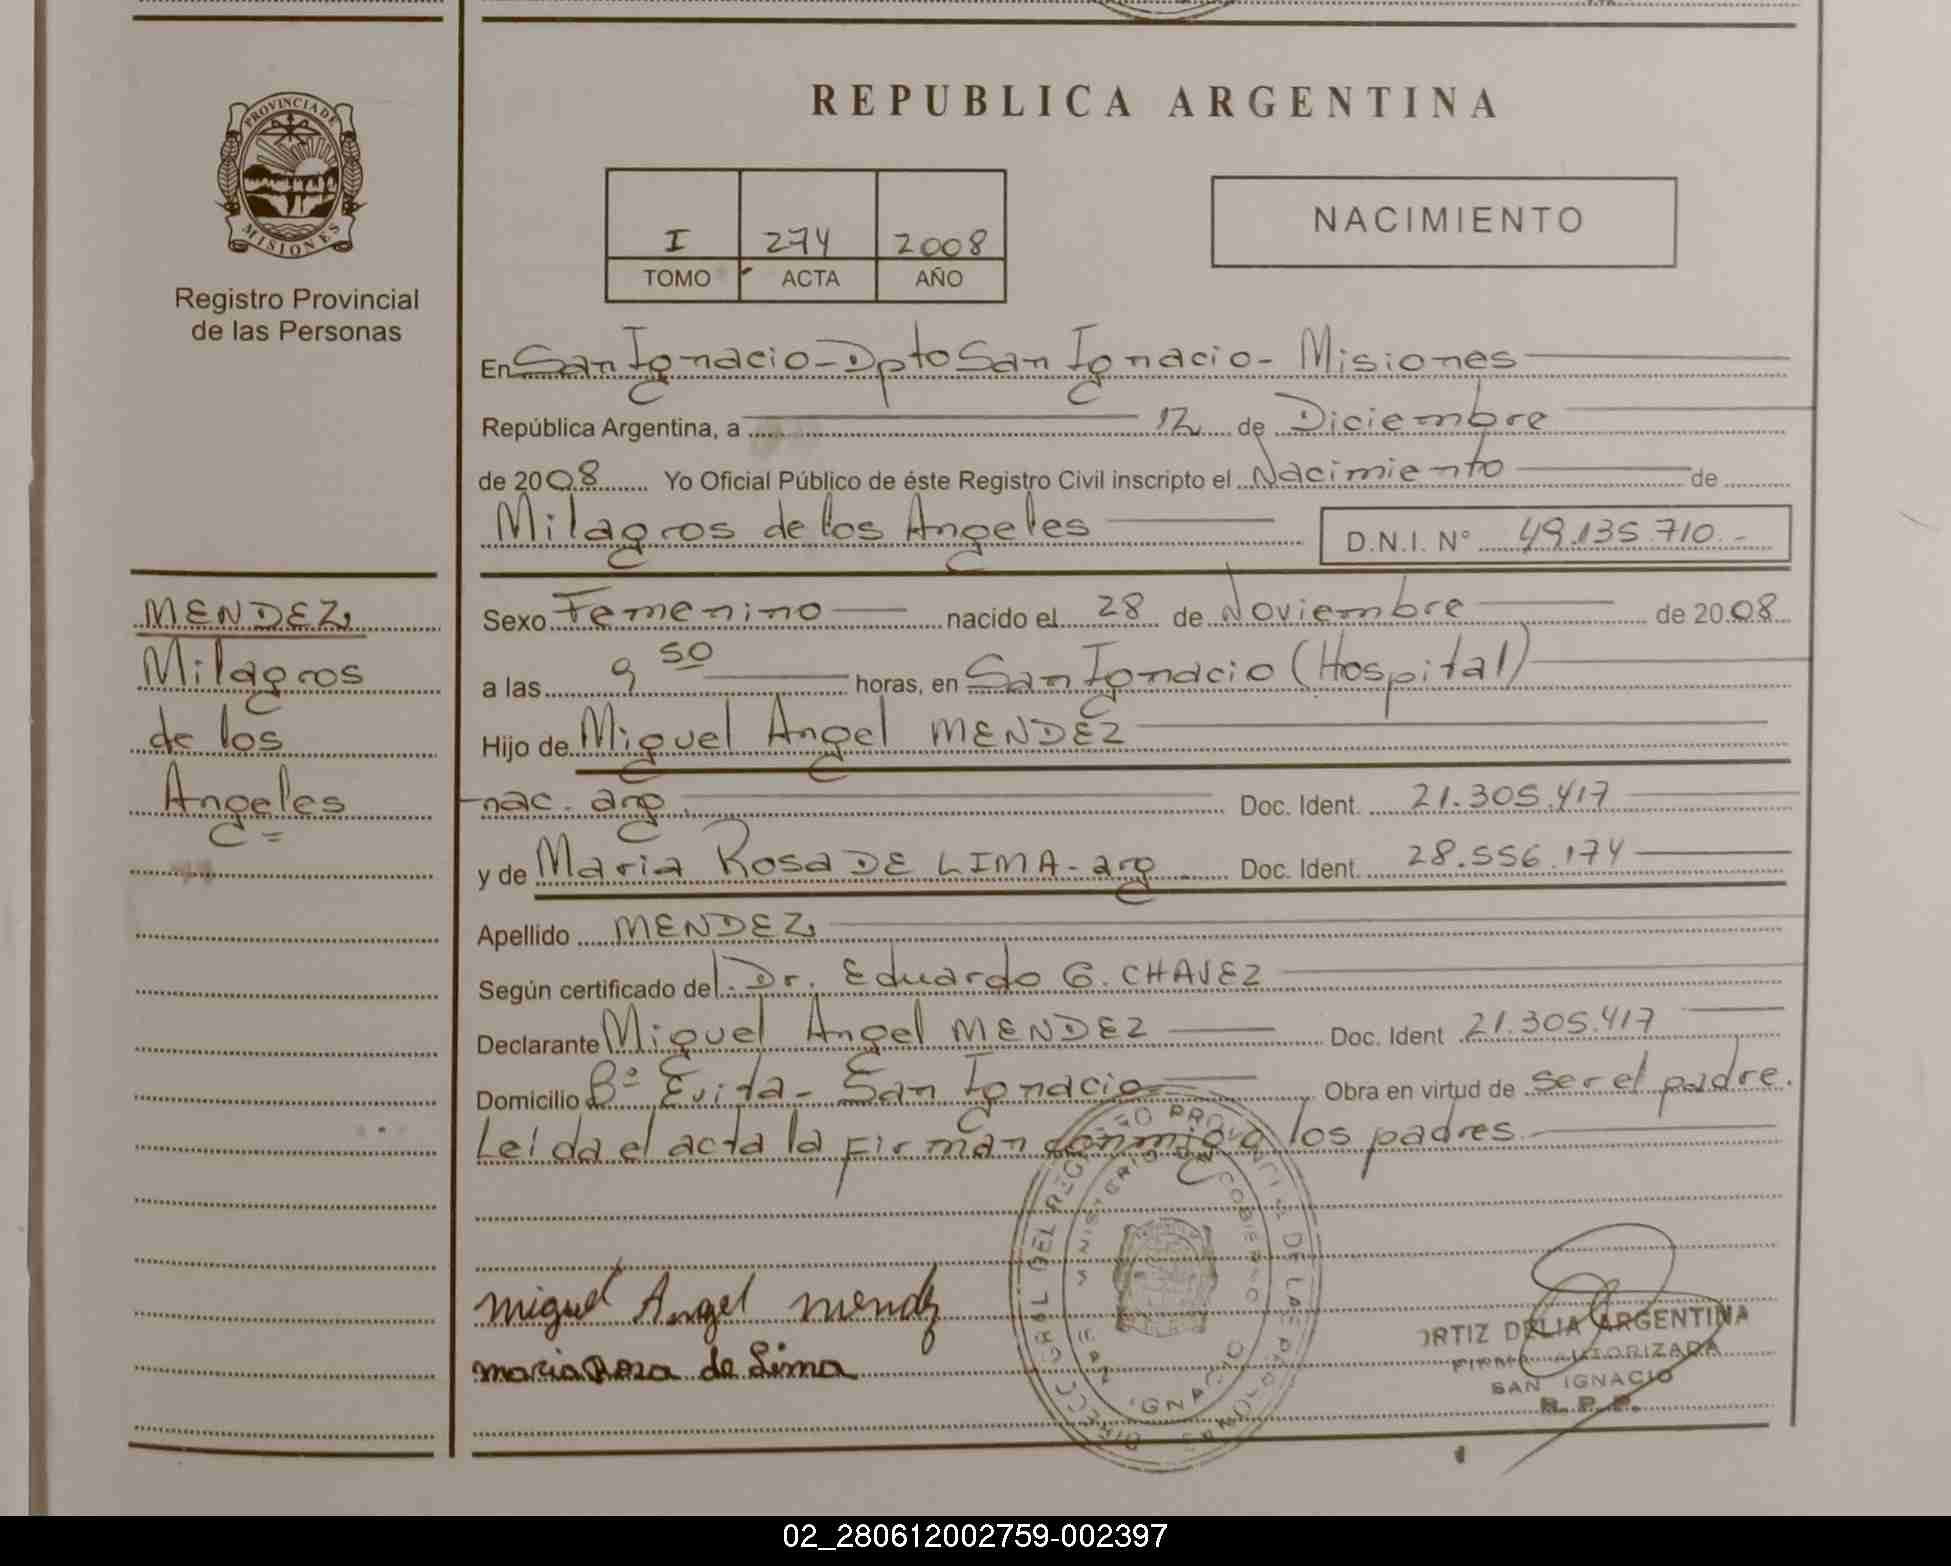 REPUBLICA ARGENTINA
PROVINCIA DE
MISIONES
Registro Provincial
de las Personas
I 274 2008
TOMO ACTA AÑO
NACIMIENTO
En San Ignacio - Dpto San Ignacio - Misiones
República Argentina, a 12 de Diciembre
de 2008 Yo Oficial Público de éste Registro Civil inscripto el Nacimiento de
Milagros de los Angeles D.N.I. N° 49.135.710.-
MENDEZ,
Milagros
de los
Angeles
Sexo Femenino nacido el 28 de Noviembre de 2008
a las 9 50 horas, en San Ignacio (Hospital)
Hijo de Miguel Angel MENDEZ
nac. arg. Doc. Ident. 21.305.417
y de Maria Rosa DE LIMA - arg Doc. Ident. 28.556.174
Apellido MENDEZ,
Según certificado del Dr. Eduardo G. CHAVEZ
Declarante Miguel Angel MENDEZ Doc. Ident 21.305.417
Domicilio B° Evita - San Ignacio Obra en virtud de ser el padre.
Leída el acta la firman conmigo los padres.
Miguel Angel Mendz
maria Rosa de Lima
ORTIZ DELIA ARGENTINA
FIRMA AUTORIZADA
SAN IGNACIO
R. P. P.
02_280612002759-002397